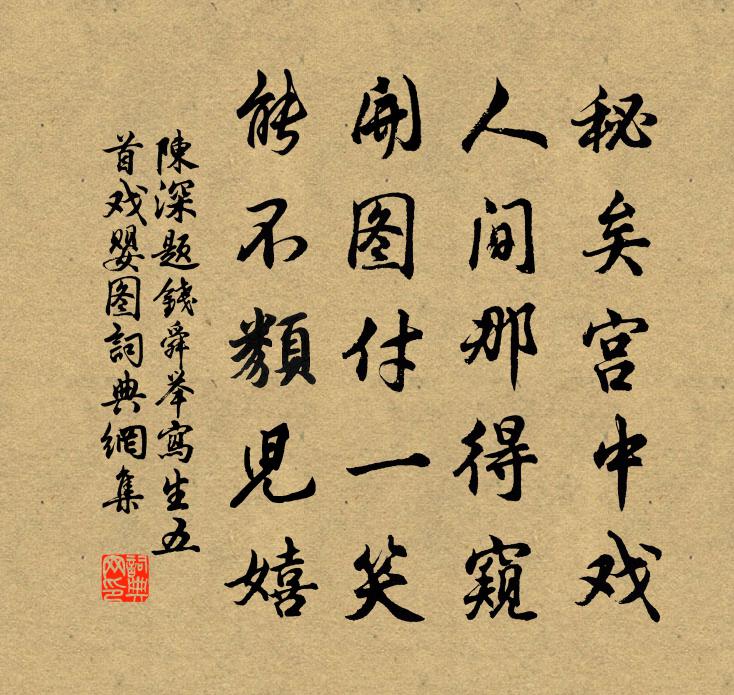 秘矣宫中戏
人间那得窥
開图付一笑
能不類児嬉
陳深题錢舜举寫生五
首戏婴图詞典網集
詞典网印